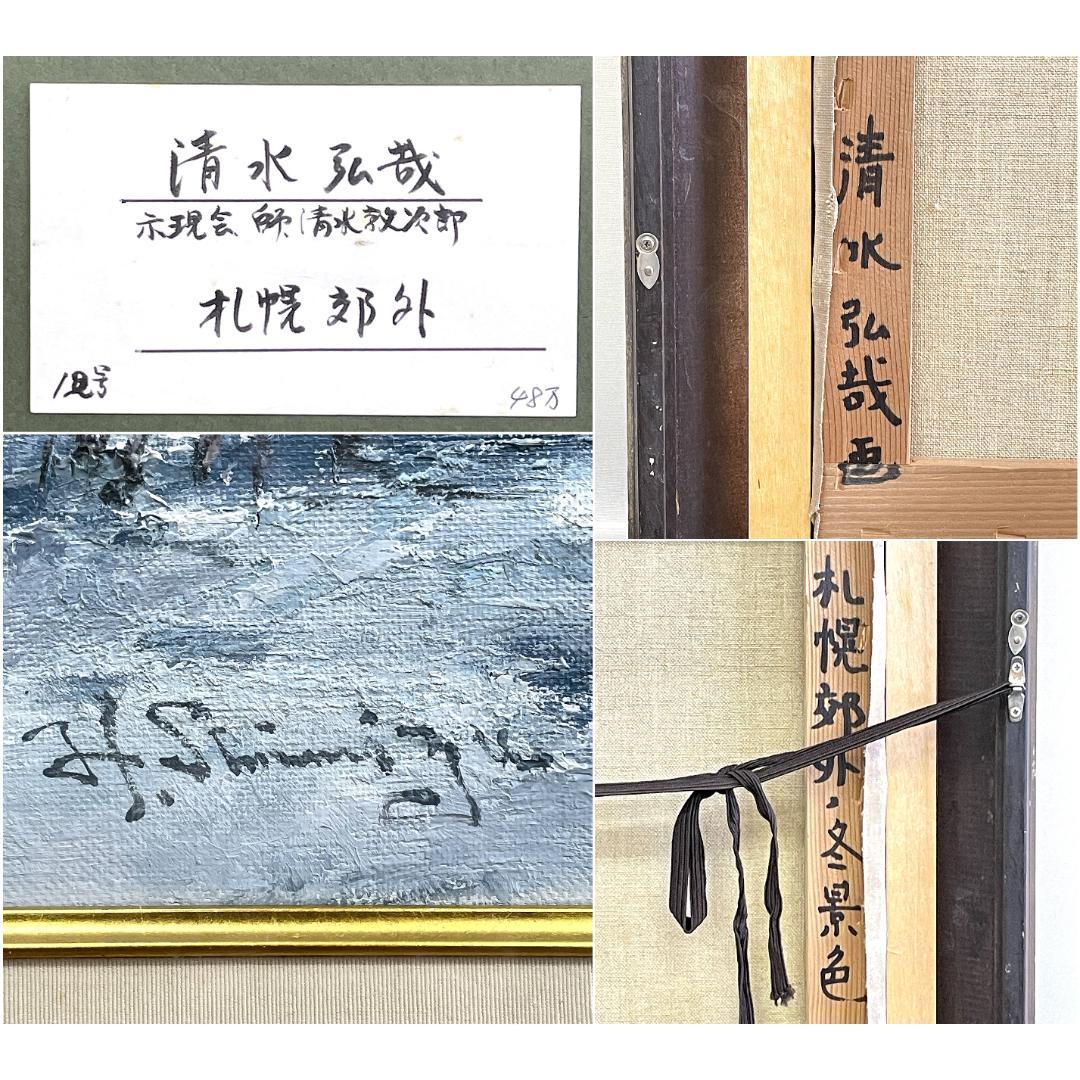 清水 弘哉
示現会 師 清水敦次郎
札幌 郊外
48万
清水弘哉画
H. Shimizu
札幌郊外・冬景色